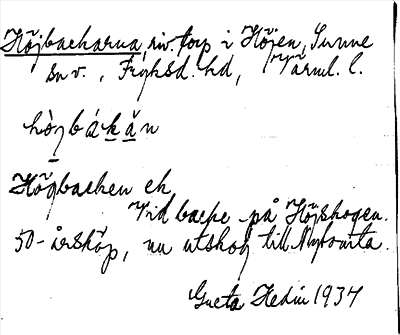 Höjbackarna, riv. torp i Höjen, Sunne
sn v., Fryksd. hd, Värml. l.
hö̀gbákăn
Högbacken ek.
Vid backe på Höjskogen.
50-årsköp, nu utskog till Nytomta.
Greta Hedin 1934